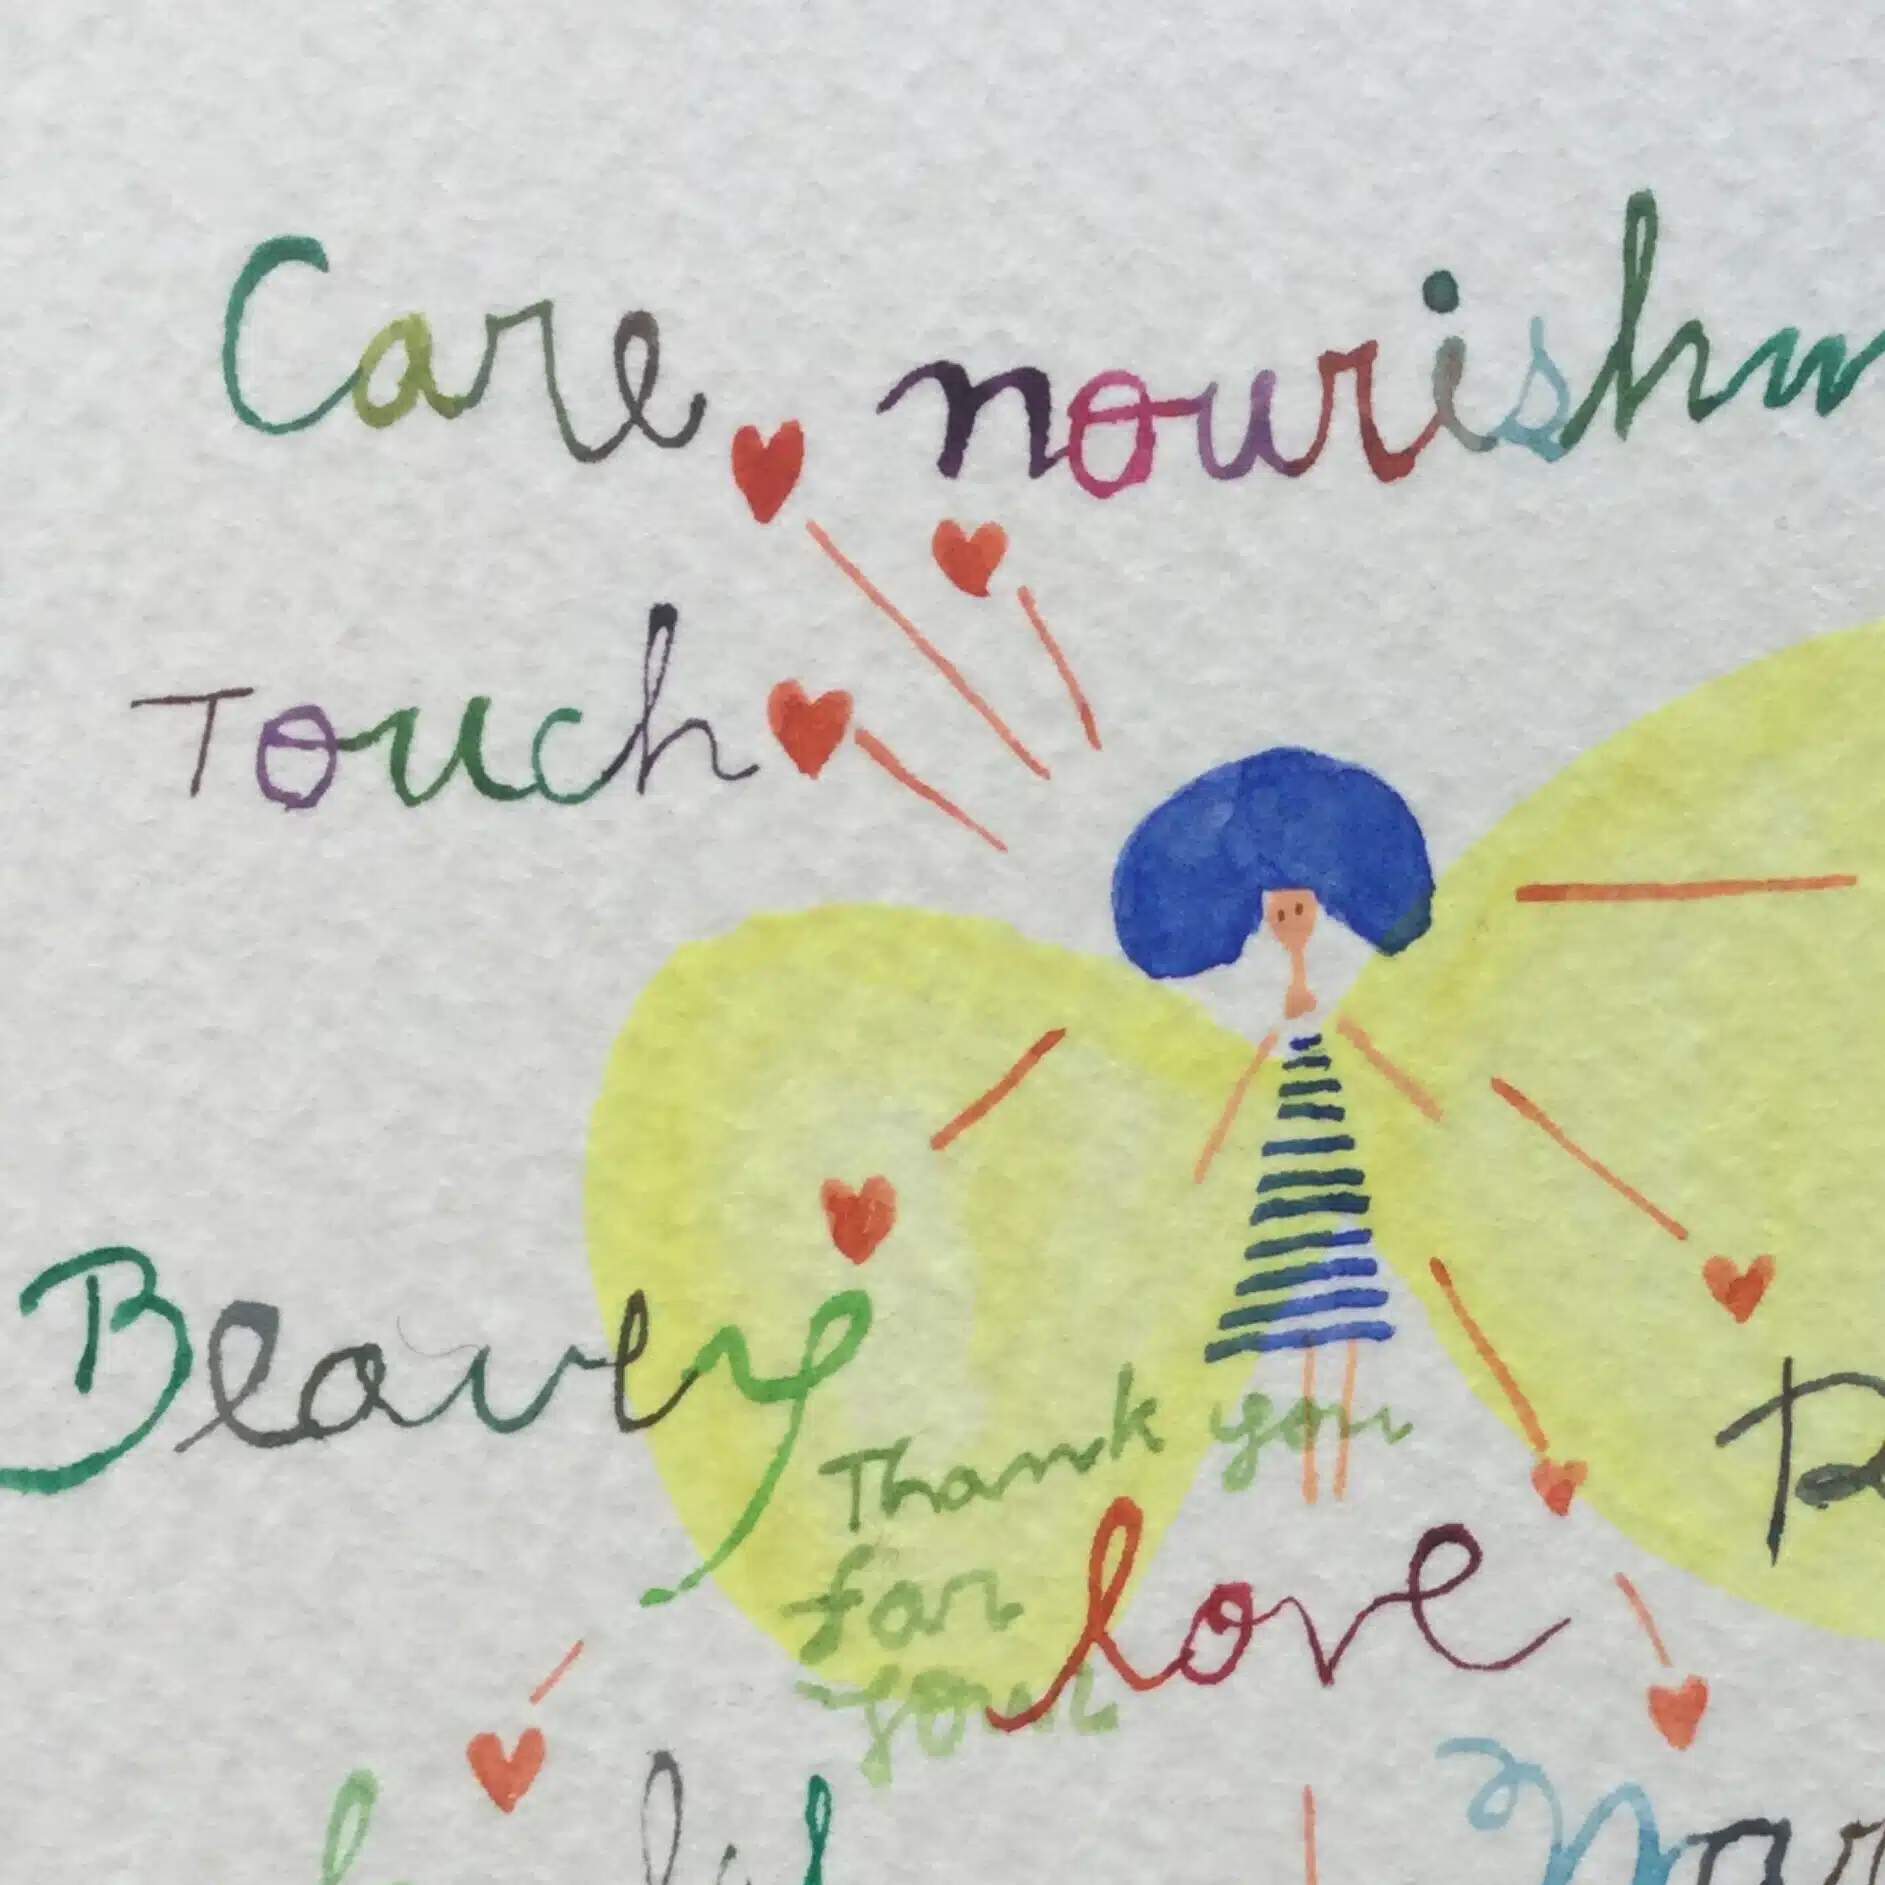 Care nourishm
Touch
Beauty
Thank you
for
your love